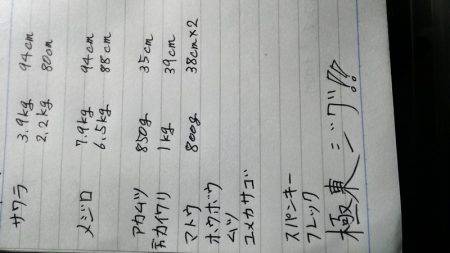 サワラ 3.9kg 94cm
2.2kg 80cm
メジロ 7.9kg 94cm
6.5kg 88cm
アカムツ 850g 35cm
カイワリ 1kg 39cm
マトウ 800g 38cm×2
ホウボウ
ムツ
ユメカサゴ
スパンキー
フレック
極東ジグ!!